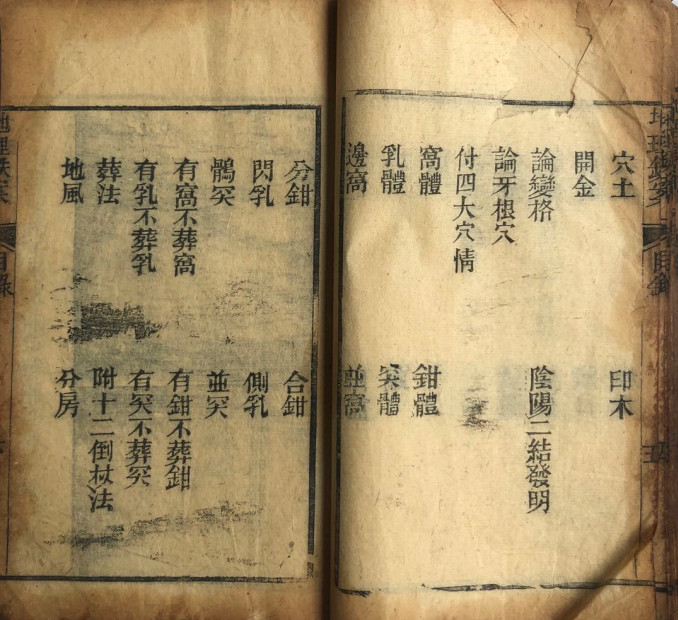 穴土 印木
開金
論變格 陰陽二結發明
論牙根穴
付四大穴情
窩體 鉗體
乳體 突體
邊窩 並窩
分鉗 合鉗
閃乳 側乳
鶻突 並突
有窩不葬窩 有鉗不葬鉗
有乳不葬乳 有突不葬突
葬法 附十二倒杖法
地風 分房
目錄